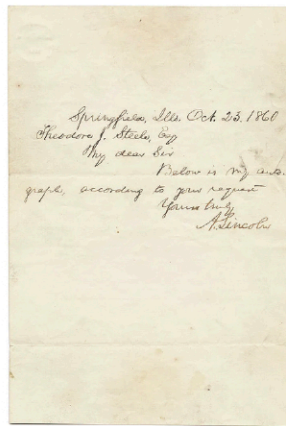 Springfield, Ills. Oct. 23. 1860
Theodore J. Steele, Esq
My dear Sir
Below is my auto-
graph, according to your request
Yours truly,
A. Lincoln